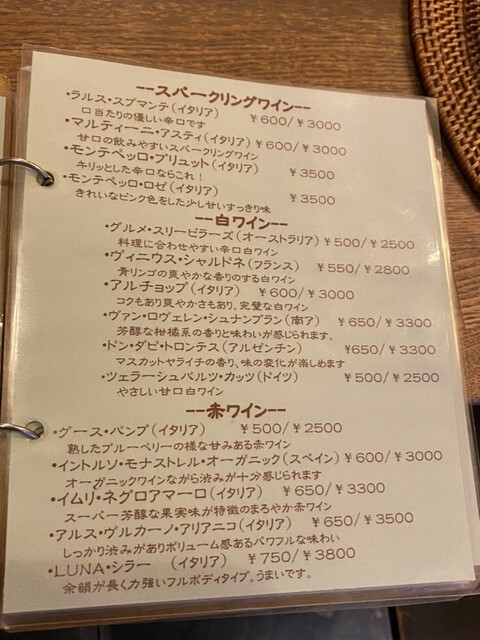 --スパークリングワイン--
・ラルス・スプマンテ(イタリア) ￥600/￥3000
口当たりの優しい辛口です
・マルティーニ・アスティ(イタリア)￥600/￥3000
甘口の飲みやすいスパークリングワイン
・モンテベッロ・ブリュット(イタリア) ￥3500
キリッとした辛口ならこれ！
・モンテベッロ・ロゼ(イタリア) ￥3500
きれいなピンク色をした少し甘いすっきり味
--白ワイン--
・グルメ・スリーピラーズ(オーストラリア)￥500/￥2500
料理に合わせやすい辛口白ワイン
・ヴィニウス・シャルドネ(フランス) ￥550/￥2800
青リンゴの爽やかな香りのする白ワイン
・アルチョップ(イタリア) ￥600/￥3000
コクもあり爽やかさもあり、完璧な白ワイン
・ヴァン・ロヴェレン・シュナンブラン(南ア) ￥650/￥3300
芳醇な柑橘系の香りと味わいが感じられます。
・ドン・ダビ・トロンテス(アルゼンチン) ￥650/￥3300
マスカットやライチの香り、味の変化が楽しめます
・ツェラーシュバルツ・カッツ(ドイツ) ￥500/￥2500
やさしい甘口白ワイン
--赤ワイン--
・グース・バンプ(イタリア) ￥500/￥2500
熟したブルーベリーの様な甘みある赤ワイン
・イントルソ・モナストレル・オーガニック(スペイン) ￥600/￥3000
オーガニックワインながら渋みが十分感じられます
・イムリ・ネグロアマーロ(イタリア) ￥650/￥3300
スーパー芳醇な果実味が特徴のまろやか赤ワイン
・アルス・ヴルカーノ・アリアニコ(イタリア) ￥650/￥3500
しっかり渋みがありボリューム感あるパワフルな味わい
・LUNA・シラー (イタリア) ￥750/￥3800
余韻が長く力強いフルボディタイプ。うまいです。